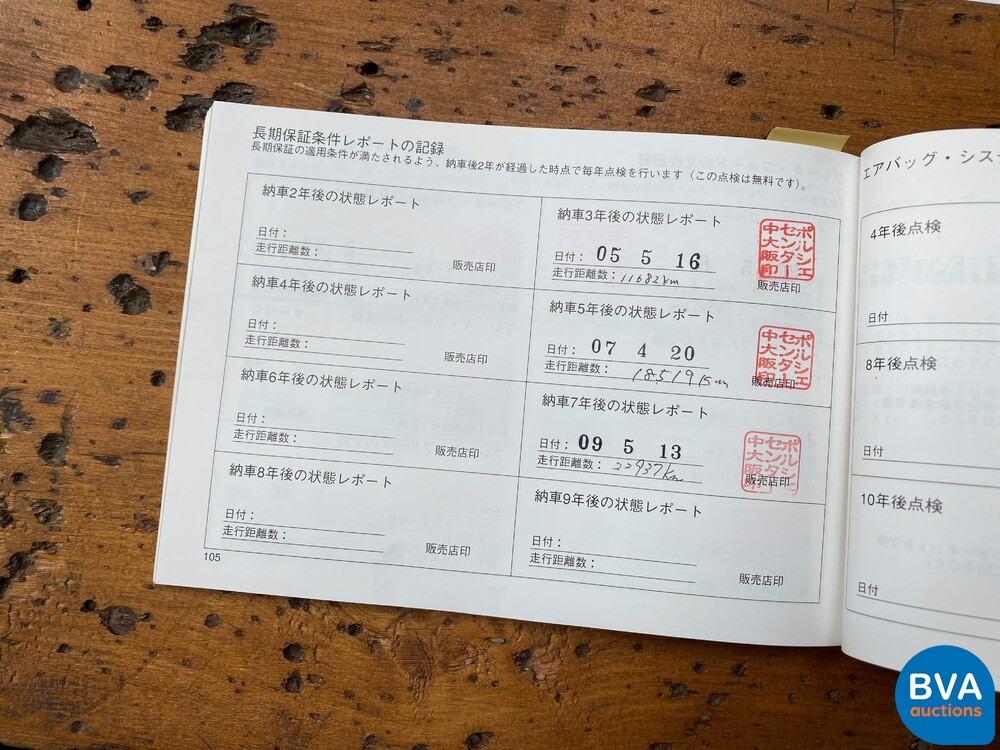 長期保証条件レポートの記録
長期保証の適用条件が満たされるよう、納車後2年が経過した時点で毎年点検を行います（この点検は無料です）。
納車2年後の状態レポート
日付：
走行距離数：
販売店印
納車3年後の状態レポート
日付： 05 5 16
走行距離数： 11682km
販売店印
ポルシェ
センター
中大阪印
納車4年後の状態レポート
日付：
走行距離数：
販売店印
納車5年後の状態レポート
日付： 07 4 20
走行距離数： 18519km
販売店印
ポルシェ
センター
中大阪印
納車6年後の状態レポート
日付：
走行距離数：
販売店印
納車7年後の状態レポート
日付： 09 5 13
走行距離数： 22937km
販売店印
ポルシェ
センター
中大阪印
納車8年後の状態レポート
日付：
走行距離数：
販売店印
納車9年後の状態レポート
日付：
走行距離数：
販売店印
105
エアバッグ・システ
4年後点検
日付
8年後点検
日付
10年後点検
日付
BVA
auctions